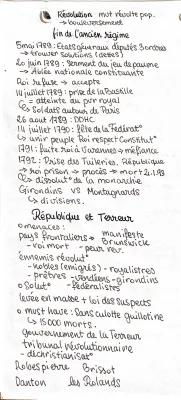 Révolution mvt révolte pop.
→ bouleversement
fin de l'ancien régime
5 mai 1789 : États généraux députés 3 ordres
→ trouver solutions (dettes)
20 juin 1789 : serment du jeu de paume
→ Ablée nationale constituante
Roi refuse → accepte
14 juillet 1789 : prise de la Bastille
- atteinte au pvr royal
Soldats autour de Paris
26 août 1789 : DDHC
14 juillet 1790 : fête de la Fédérat°
→ unir peuple Roi respect Constitut°
1791 : fuite roi à Varennes → méfiance
1792 : Prise des Tuileries. République
→ roi prison → procès → mort 21.1.93
→ dissolut° de la monarchie
Girondins vs Montagnards
↳ divisions.
République et Terreur
o menaces :
pays frontaliers → manifeste
- roi mort - peur rev. Brunswick
ennemis révolut°
- nobles (émigrés) - royalistres
- prêtres - vendéens - girondins
o Solut° - fédéralistes
levée en masse + loi des Suspects
o must have : Sans culotte guillotine
↳ 15000 morts.
gouvernement de la Terreur
tribunal révolutionnaire
- déchristianisat°
Robespierre Brissot
Danton les Rolands